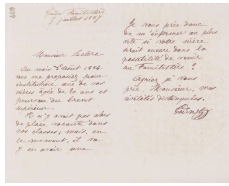 Guise Familistère
7 juillet 1887
Monsieur Leclerc
Au mois d'août 1886,
vous me proposiez pour
institutrice une de vos
nièces âgée de 20 ans et
pourvue du brevet
supérieur.
Il n'y avait pas alors
de place vacante dans
nos classes, mais, en
ce moment, il va
y en avoir une.
Je vous prie donc
de m'informer au plus
vite si votre nièce
serait encore dans la
possibilité de venir
au Familistère ?
Agréez, je vous
prie, Monsieur, mes
civilités distinguées.
Godin